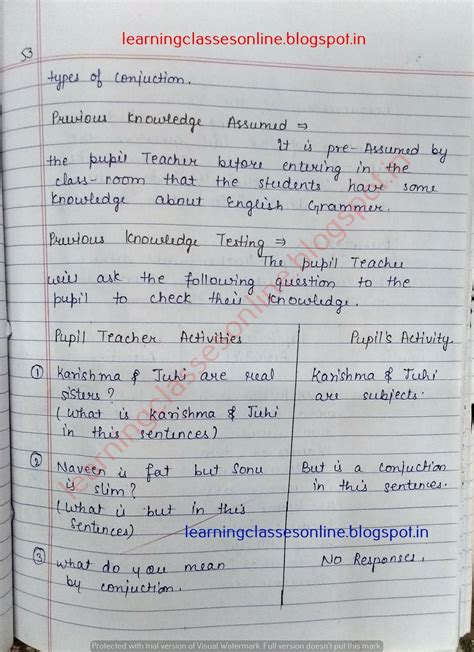 learningclassesonline.blogspot.in
53
types of conjuction.
Previous Knowledge Assumed ⇒
It is pre-Assumed by
the pupil Teacher before entering in the
class-room that the students have some
Knowledge about English Grammer.
Previous Knowledge Testing ⇒
The pupil Teacher
will ask the following question to the
pupil to check their Knowledge.
Pupil Teacher Activities Pupil's Activity
① Karishma & Juhi are real Karishma & Juhi
sisters? are subjects.
(What is Karishma & Juhi
in this sentences)
② Naveen is fat but Sonu But is a conjuction
is slim? in this sentences.
(What is but in this
sentences)
learningclassesonline.blogspot.in
③ what do you mean No Responses.
by conjuction.
learningclassesonline.blogspot.in
Protected with trial version of Visual Watermark. Full version doesn't put this mark.